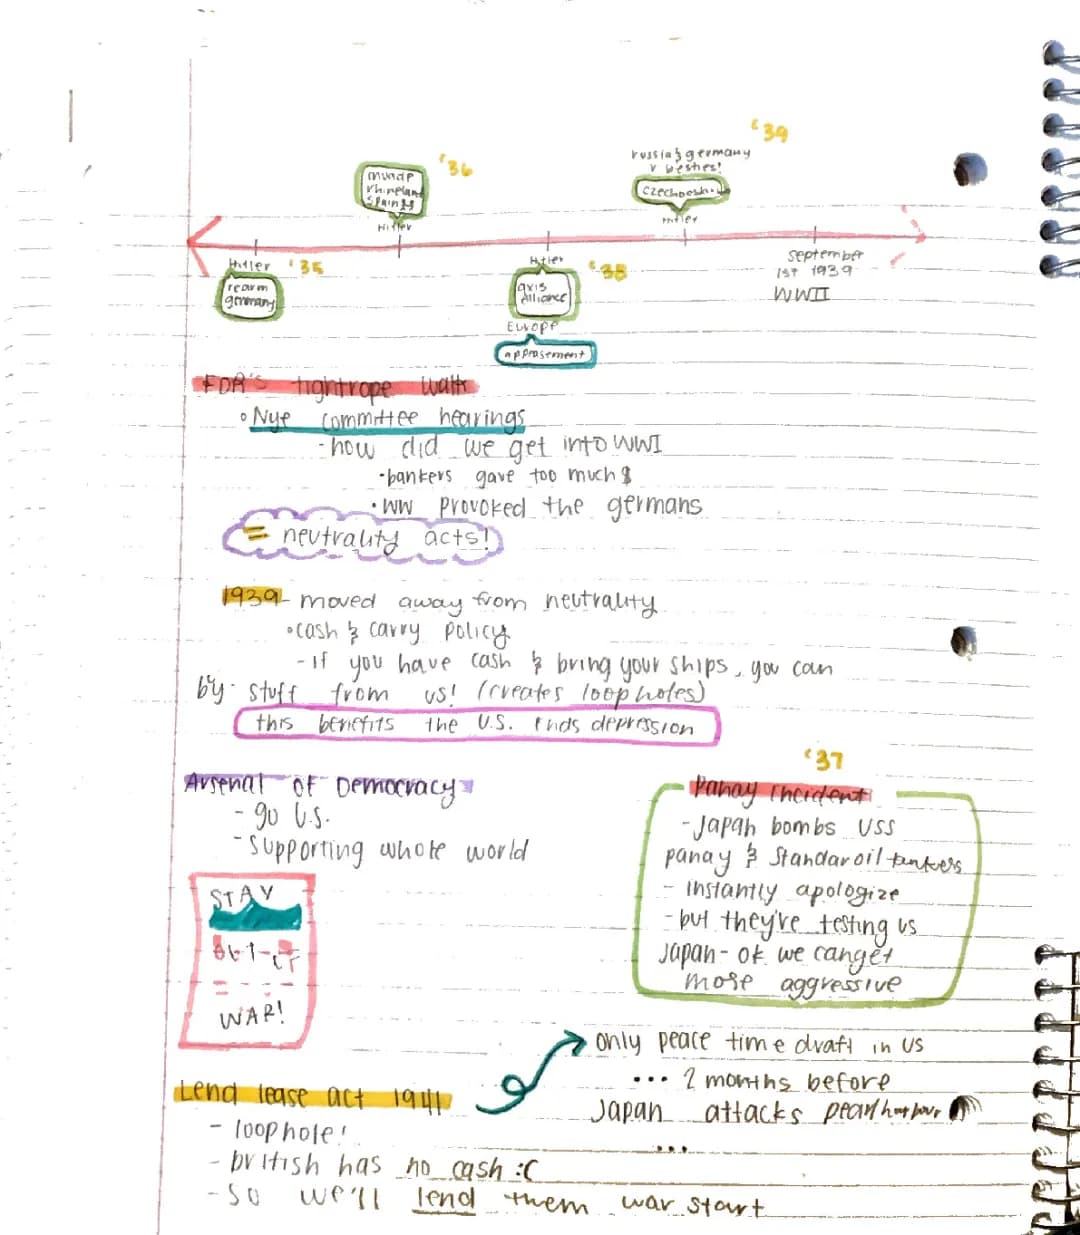 '39
russia & germany
r besties!
'36
invade
rhineland
spain
czechoslo
Hitler
Hitler
Hitler
'35
Hitler
'38
September
1st 1939
WWII
rearm
germany
axis
alliance
Europe
appeasement
FDR's tightrope walk
• Nye committee hearings
- how did we get into WWI
• bankers gave too much $
• WW provoked the germans
= neutrality acts!
1939 - moved away from neutrality
• cash & carry policy
- if you have cash & bring your ships, you can
by stuff from us! (creates loop holes)
this benefits the U.S. ends depression
'37
Arsenal of Democracy
- go U.S.
- supporting whole world
Panay incident
- Japan bombs USS
panay & Standar oil tankers
- instantly apologize
- but they're testing us
Japan - ok we can get
more aggressive
STAY
OUT OF
WAR!
only peace time draft in US
... 2 months before
Japan attacks pearl harbour
...
Lend lease act 1941
- loophole!
- british has no cash :(
- so we'll lend them war start